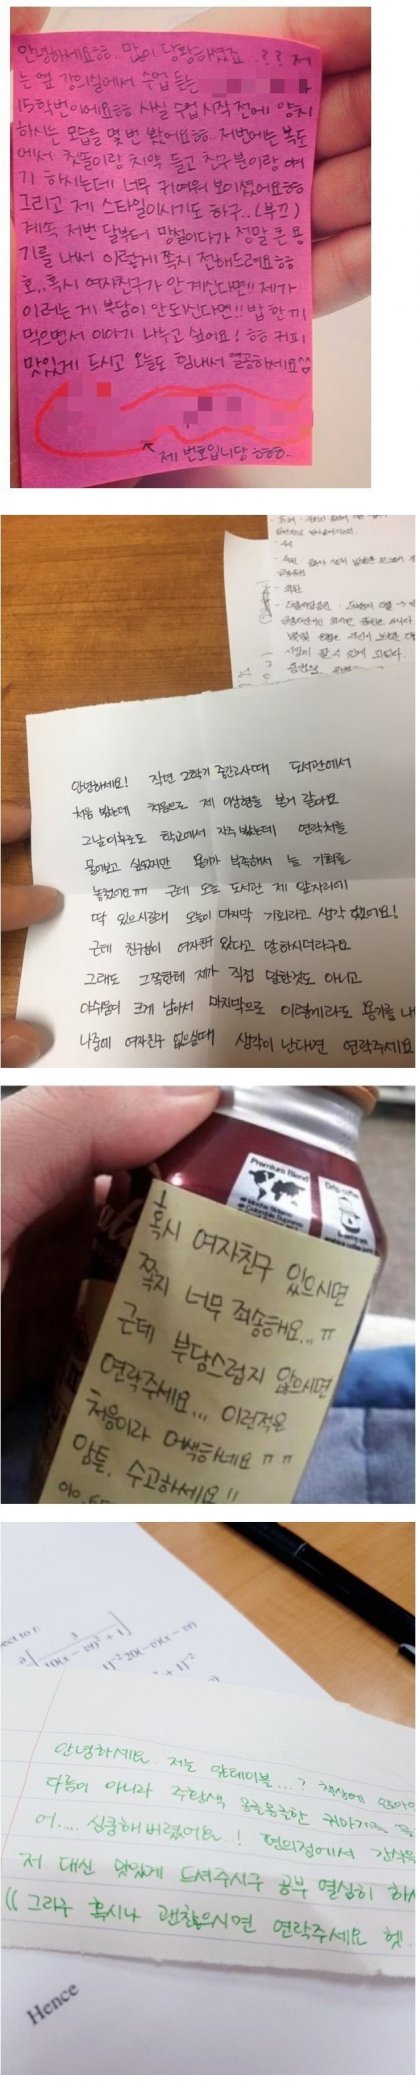 안녕하세요ㅎㅎ.. 많이 당황하셨죠..?? 저
는 옆 강의실에서 수업 듣는
15학번이에요ㅎㅎ 사실 수업시작 전에 양치
하시는 모습을 몇번 봤어요ㅎㅎ.. 저번에는 복도
에서 칫솔이랑 치약 들고 친구분이랑 얘
기 하시는데 너무 귀여워 보이셨어요ㅎㅎ
그리고 제 스타일이시기도 하구..(부끄)
계속 저번 달부터 망설이다가 정말 큰 용
기를 내서 이렇게 쪽지 전해드려요ㅎㅎ
호..혹시 여자친구가 안 계신다면!! 제가
이러는 게 부담이 안되신다면!! 밥 한끼
먹으면서 이야기 나누고 싶어요! ㅎㅎ 커피
맛있게 드시고 오늘도 힘내서 열공하세요^^
제 번호입니당 ㅎㅎㅎ..
안녕하세요! 작년 2학기 중간고사때 도서관에서
처음 봤는데 처음으로 제 이상형을 본거 같아요
그날이후로도 학교에서 자주 봤는데 연락처를
물어보고 싶었지만 용기가 부족해서 늘 기회를
놓쳤어요ㅠㅠ 근데 오늘 도서관 제 앞자리에
딱 있으시길래 오늘이 마지막 기회라고 생각 했어요!
근데 친구분이 여자친구 있다고 말하시더라구요
그래도 그쪽한테 제가 직접 말한것도 아니고
아쉬움이 크게 남아서 마지막으로 이렇게라도 용기를 내
나중에 여자친구 없으실때 생각이 난다면 연락주세요
Premium Blend
Drip coffee
혹시 여자친구 있으시면
쪽지 너무 죄송해요... ㅠ
근데 부담스럽지 않으시면
연락주세요... 이런적은
처음이라 어색하네요 ㅠㅠ
암튼, 수고하세요!!
안녕하세요. 저는 앞테이블...? 책상에 앉아
다름이 아니라 주황색 귀마개를
어.... 심쿵해버렸어요..! 편의점에서 간식을
저 대신 맛있게 드셔주시구 공부 열심히 하
(( 그리구 혹시나 괜찮으시면 연락주세요 헷.
Hence